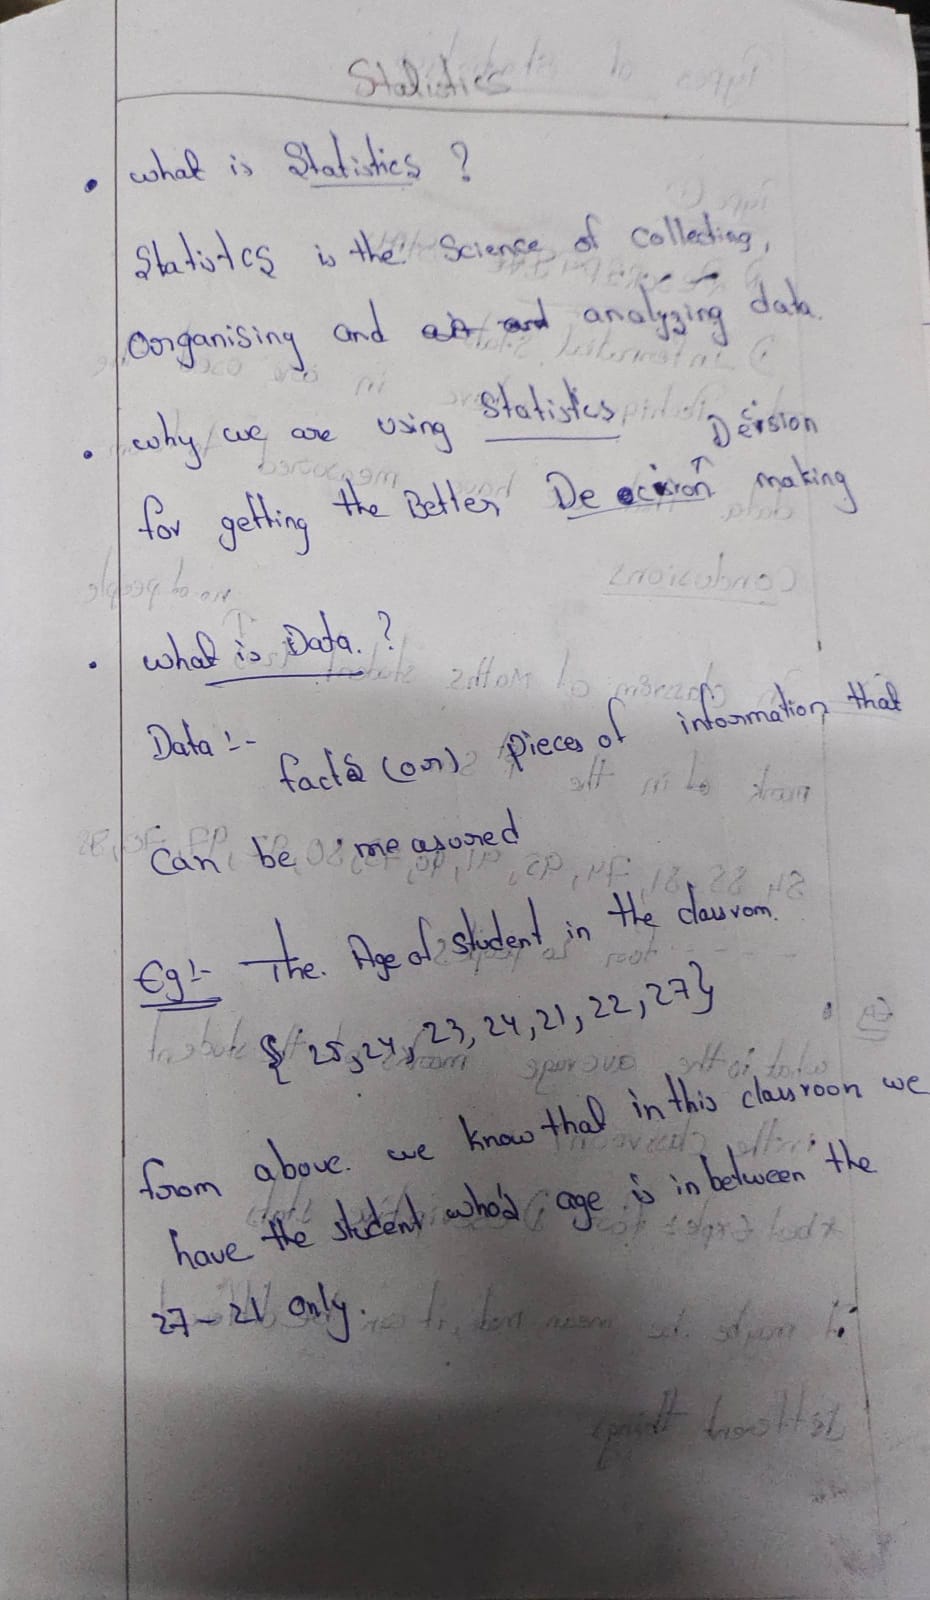 Statistics
• what is Statistics ?
Statistcs is the Science of Collecting,
Oorganising and and analyzing data.
• why we are using Statistics
Desision
for getting the Better Decision making
• what is Data. ?
Data :- facts (or) pieces of information that
can be measured
Eg :- The. Age of student in the classrom.
{ 25, 24, 23, 24, 21, 22, 27}
from above. we know that in this classroon we
have the student who's age is in between the
27 - 21 only.